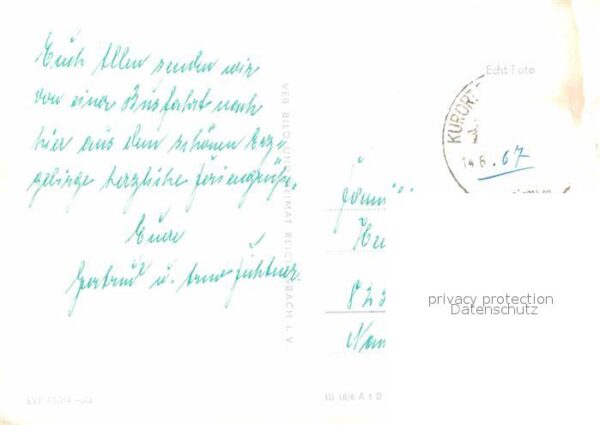 Euch Allen senden wir
von einer Busfahrt nach
hier aus dem schönen Erz-
gebirge herzliche Feriengrüße.
Eure
Gertrud u. Arno
VEB BILD UND HEIMAT REICHENBACH i. V.
Echt Foto
KURORT
14.6.67
Fami
823
privacy protection
Datenschutz
III 18/6 A 1 B